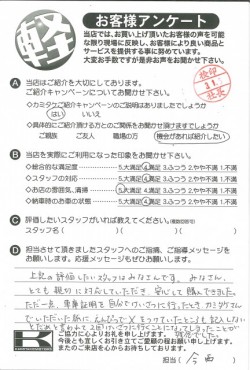 軽
お客様アンケート
当店では、お買い上げ頂いたお客様の声を可能
な限り現場に反映し、お客様により良い商品と
サービスを提供する事に努めています。
大変お手数ですが是非お声をお聞かせ下さい。
A 当店はご紹介を大切にしております。
ご紹介キャンペーンについてお聞かせ下さい。
◇カミタケご紹介キャンペーンのご説明はありましたでしょうか
はい いいえ
◇具体的にご紹介頂ける方とのご関係をお聞かせ頂けますでしょうか
ご親族 ご友人 職場の方 機会があれば紹介したい
B 当店を実際にご利用になった印象をお聞かせ下さい。
◇総合的な満足度 5.大満足 4.満足 3.ふつう 2.やや不満 1.不満
◇スタッフの対応 5.大満足 4.満足 3.ふつう 2.やや不満 1.不満
◇お店の雰囲気、清掃 5.大満足 4.満足 3.ふつう 2.やや不満 1.不満
◇納車時のお車の状態 5.大満足 4.満足 3.ふつう 2.やや不満 1.不満
C 評価したいスタッフがいれば教えてください。(複数回答可)
スタッフ名( )( )( )
D 担当させて頂きましたスタッフへのご指摘、ご指導メッセージを
お願いします。応援メッセージもぜひお願いします。
上記の評価したいスタッフはみなさんです。みなさん、
とても親切に対応していただき、安心して購入できました。
ただ一点、車庫証明を自分でけいさつに行ったとき、カミタケさん
でいただいた紙に、えんぴつで
ご協力に心よりお礼を申し上げます。
今後とも宜しくお引き立てご愛顧の程お願い申し上げます。
またのご来店を心からお待ちしております。
担当( 今西 )